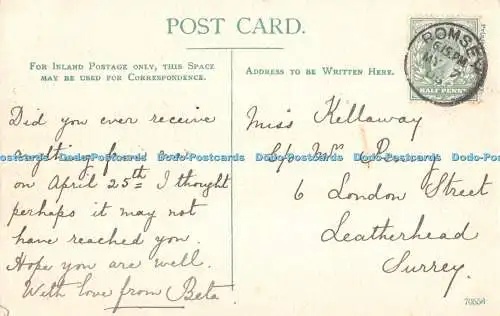 POST CARD.
FOR INLAND POSTAGE ONLY, THIS SPACE
MAY BE USED FOR CORRESPONDENCE.
ADDRESS TO BE WRITTEN HERE.
ROMSEY
6.15 PM
MY 7
HALF PENNY
Did you ever receive
anything from me
on April 25th = I thought
perhaps it may not
have reached you.
Hope you are well.
With love from Beta.
Miss Kellaway
C/o Mrs
6 London Street
Leatherhead
Surrey.
70554
Dodo-Postcards Dodo-Postcards Dodo-Postcards Dodo-Postcards Dodo-Postcards Dodo-Postcards